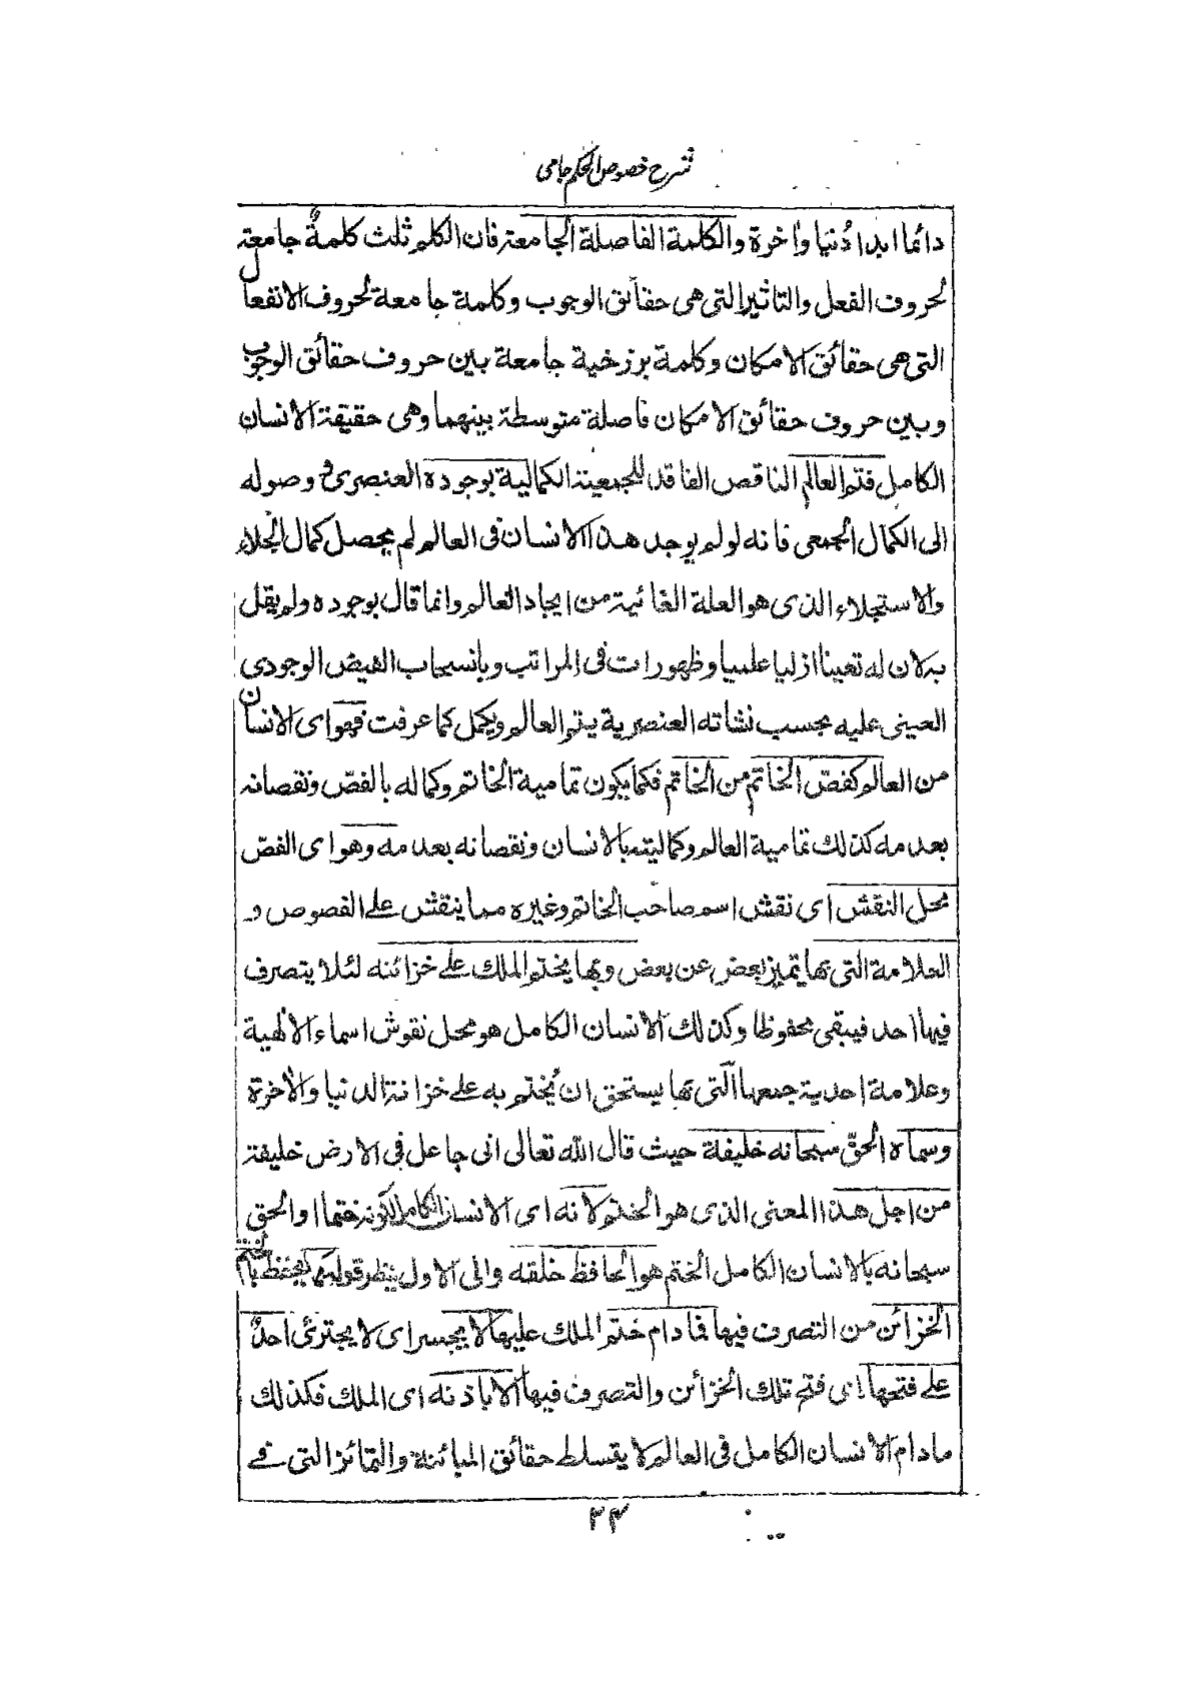 شرح فصوص الحكم جامى
دائما ابدا دُنيا واٰخرة والكلمة الفاصلة الجامعة فان الكلم ثلث كلمةٌ جامعة
لحروف الفعل والتاثير التى هى حقائق الوجوب وكلمة جامعة لحروف الانفعال
التى هى حقائق الامكان وكلمة برزخية جامعة بين حروف حقائق الوجوب
وبين حروف حقائق الامكان فاصلة متوسطة بينهما وهى حقيقة الانسان
الكامل فتم العالم الناقص الفاقد للجمعية الكمالية بوجوده العنصرى فى وصوله
الى الكمال الجمعى فانه لو لم يوجد هذا الانسان فى العالم لم يحصل كمال الجلاء
والاستجلاء الذى هو العلة الغائية من ايجاد العالم وانما قال بوجوده ولم يقل
به لان له تعينا ازليا علميا وظهورات فى المراتب وبانسحاب الفيض الوجودى
العينى عليه بحسب نشاته العنصرية يتم العالم ويكمل كما عرفت فهو اى الانسان
من العالم كفصّ الخاتم من الخاتم فكما يكون تمامية الخاتم وكماله بالفصّ ونقصانه
بعدمه كذلك تمامية العالم وكماليته بالانسان ونقصانه بعدمه وهو اى الفصّ
محل النقش اى نقش اسم صاحب الخاتم وغيره مما ينقش على الفصوص و
العلامة التى بها يتميز بعض عن بعض وبها يختم الملك على خزائنه لئلا يتصرف
فيها احد فيبقى محفوظا وكذلك الانسان الكامل هو محل نقوش اسماء الالٰهية
وعلامة احدية جمعها الّتى بها يستحق ان يُختم به على خزانة الدنيا والاٰخرة
وسماه الحقّ سبحانه خليفة حيث قال الله تعالى انى جاعل فى الارض خليفة
من اجل هذا المعنى الذى هو الختم لانه اى الانسان الكامل لكونه ختما والحق
سبحانه بالانسان الكامل الختم هو الحافظ خلقه والى الاول ينظر قوله كما يحفظ بالختم
الخزائن من التصرف فيها فما دام ختم الملك عليها لا يجسر اى لا يجترئ احدٌ
على فتحها اى فتح تلك الخزائن والتصرف فيها الا باذنه اى الملك فكذلك
مادام الانسان الكامل فى العالم لا يتسلط حقائق المبائنة والتمائز التى فى
۳۴